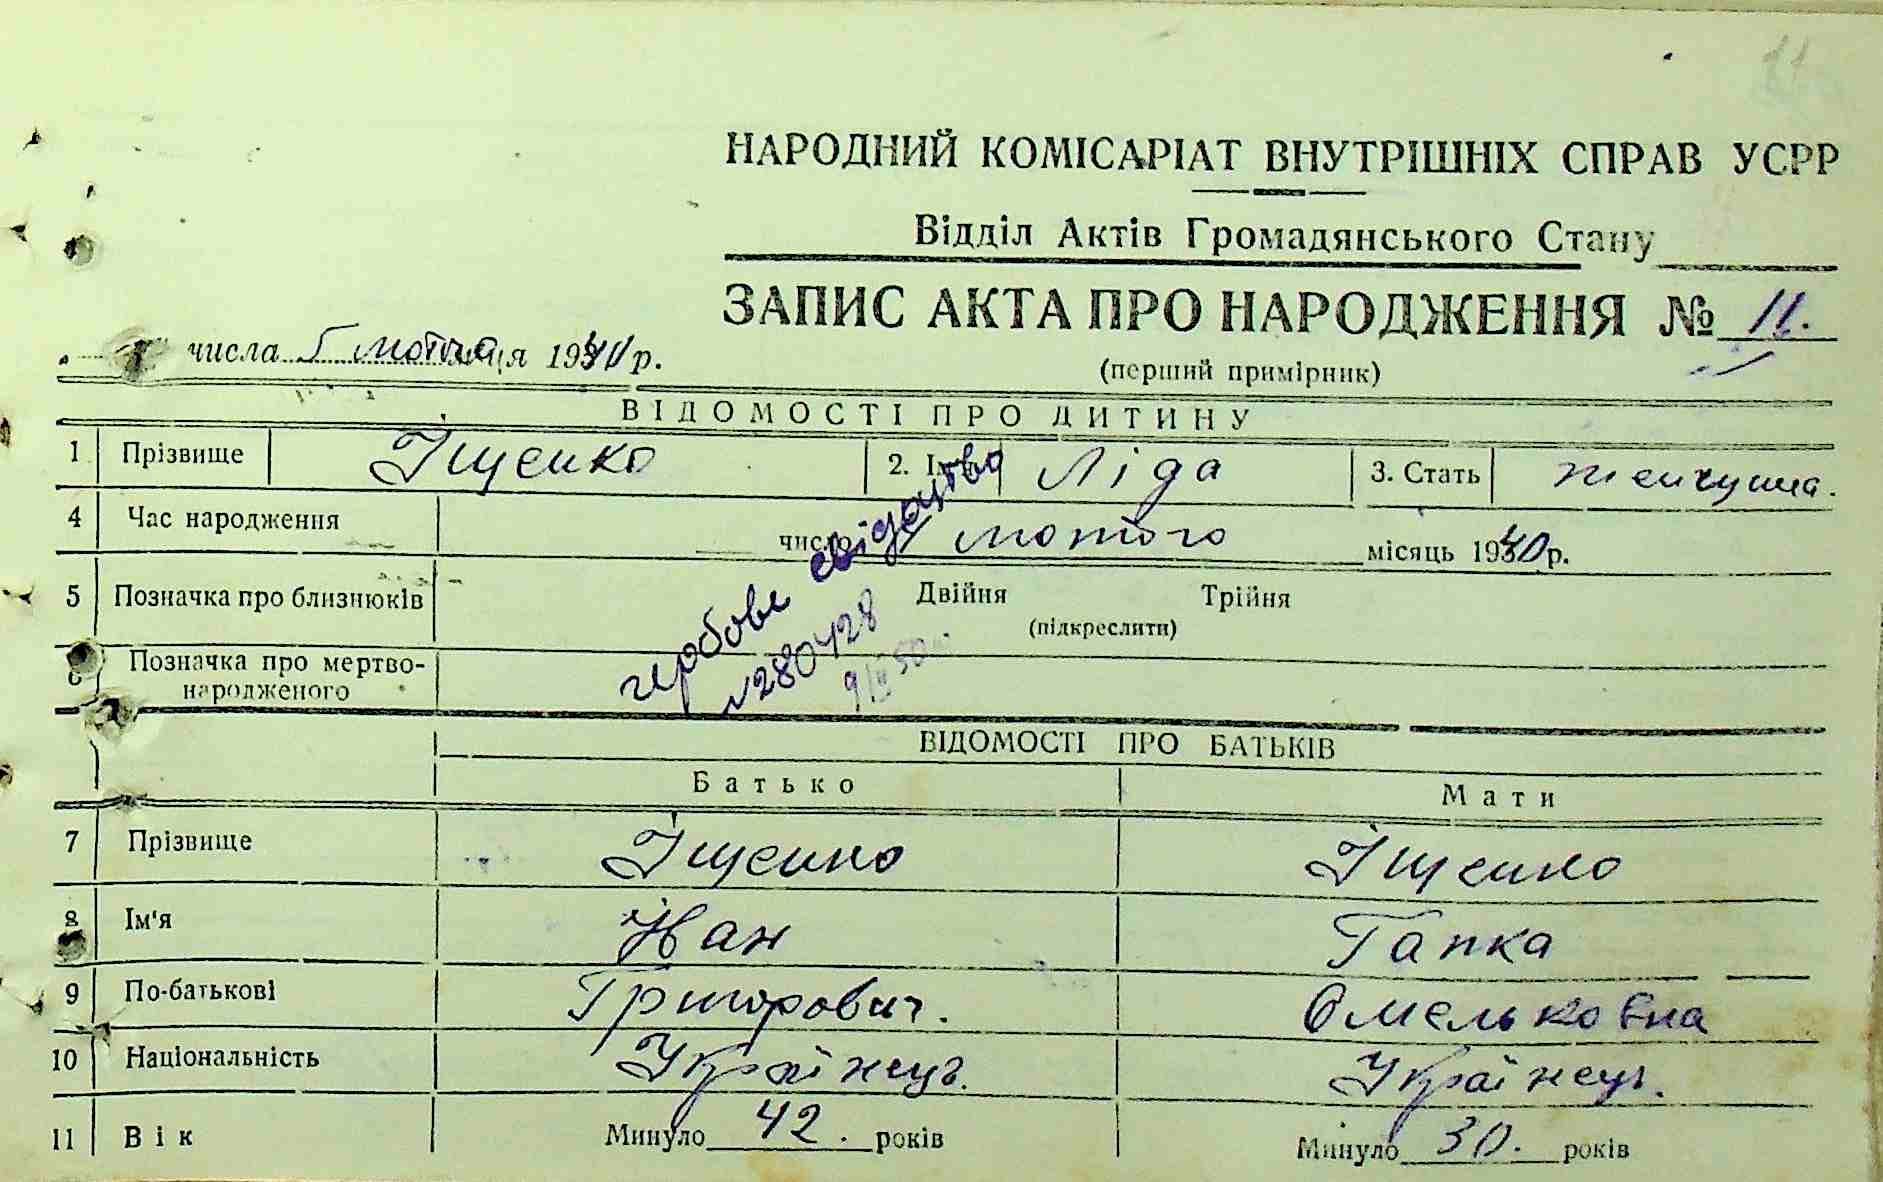 11
НАРОДНИЙ КОМІСАРІАТ ВНУТРІШНІХ СПРАВ УСРР
Відділ Актів Громадянського Стану
ЗАПИС АКТА ПРО НАРОДЖЕННЯ № 11.
числа 5 лютого місяця 1940 р.
(перший примірник)
ВІДОМОСТІ ПРО ДИТИНУ
1 Прізвище Іщенко 2. Ім'я Ліда 3. Стать женчина.
4 Час народження число лютого місяць 1940 р.
5 Позначка про близнюків Двійня Трійня
(підкреслити)
6 Позначка про мертво-
народженого
гербове свідоцтво
№280428
ВІДОМОСТІ ПРО БАТЬКІВ
Батько Мати
7 Прізвище Іщенко Іщенко
8 Ім'я Іван Гапка
9 По-батькові Григорович. Омельковна
10 Національність Українець. Українець.
11 Вік Минуло 42. років Минуло 30. років